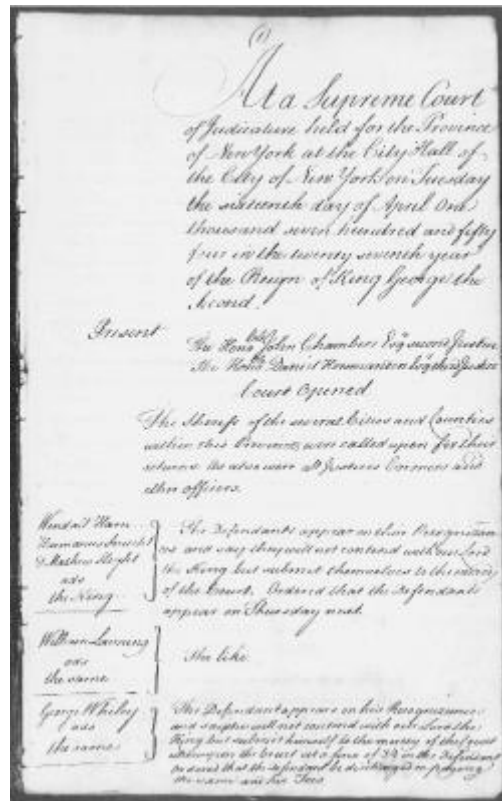 (1)
At a Supreme Court
of Judicature held for the Province
of New York at the City Hall of
the City of New York on Tuesday
the sixteenth day of April One
thousand seven hundred and fifty
four in the twenty seventh year
of the Reign of King George the
Second.
Present
The Honble John Chambers Esqr second Justice
The Honble Daniel Horsmanden Esqr third Justice
Court Opened
The Sheriffs of the several Cities and Counties
within this Province were called upon for their
returns As also were all Justices Coroners and
other officers.
Wendell Ham
Hermanus
ads
the King
The Defendants appear on their Recognizan
ces and say they will not contend with our Lord
the King but submit themselves to the mercy
of the Court. Ordered that the Defendants
appear on Thursday next.
William
ads
the same
The like
George
ads
the same
The Defendant appears on his Recognizance
and will not contend with our Lord the
King but submit himself to the mercy of the Court
the Court set a fine of on the Defendant
Ordered that the defendant be discharged on paying
the same and his Fees